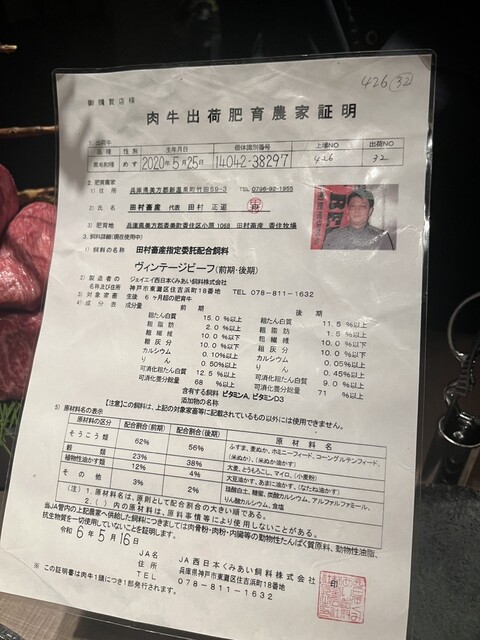 426 32
御購買店様
肉牛出荷肥育農家証明
1. 出荷牛
品種 性別 生年月日 個体識別番号 上場NO 出荷NO
黒毛和種 めす 2020年5月25日 14042-38297 426 32
2. 肥育農家
1) 住所 兵庫県美方郡新温泉町竹田59-3 TEL 0796-92-1955
2) 氏名 田村畜産 代表 田村 正道
3) 肥育地 兵庫県美方郡香美町香住区小原1068 田村畜産 香住牧場
3. 飼料詳細(現在使用中)
1) 飼料の名称 田村畜産指定委託配合飼料
ヴィンテージビーフ(前期・後期)
2) 製造者の名称及び住所 ジェイエイ西日本くみあい飼料株式会社
神戸市東灘区住吉浜町18番地 TEL 078-811-1632
3) 対象家畜 生後6ヶ月超の肥育牛
4) 成分表 成分量 前期 後期
粗たん白質 15.0 %以上 粗たん白質 11.5 %以上
粗脂肪 2.0 %以上 粗脂肪 1.5 %以上
粗繊維 10.0 %以下 粗繊維 10.0 %以下
粗灰分 10.0 %以下 粗灰分 10.0 %以下
カルシウム 0.10%以上 カルシウム 0.05%以上
りん 0.50%以上 りん 0.45%以上
可消化粗たん白質 12.5 %以上 可消化粗たん白質 9.0 %以上
可消化養分総量 68 %以上 可消化養分総量 71 %以上
含有する飼料添加物の名称 ビタミンA, ビタミンD3
【注意】この飼料は、上記の対象家畜等に記載されているもの以外には使用できません。
5) 原材料名の表示
原材料の区分 配合割合(前期) 配合割合(後期) 原材料名
そうこう類 62% 56% ふすま、麦ぬか、ホミニーフィード、コーングルテンフィード、(米ぬか)、(米ぬか油かす)
穀類 23% 38% 大麦、とうもろこし、マイロ、(小麦粉)
植物性油かす類 12% 4% 大豆油かす、あまに油かす、(なたね油かす)
その他 3% 2% 珪酸白土、糖蜜、炭酸カルシウム、アルファルファミール、りん酸カルシウム、食塩
(注) 1. 原材料名は、原則として配合割合の大きい順である。
2. ( )内の原材料は、原料事情等により使用しないことがある。
当JA管内の上記農家へ供給した飼料につきましては肉骨粉・肉粉・内臓等の動物性たんぱく質原料、動物性油脂、
抗生物質を一切使用していないことを証明します。
令和 6年5月16日
JA名 JA西日本くみあい飼料株式会社 印
住所 兵庫県神戸市東灘区住吉浜町18番地
TEL 078-811-1632
※ この証明書は肉牛1頭につき1部発行されます。